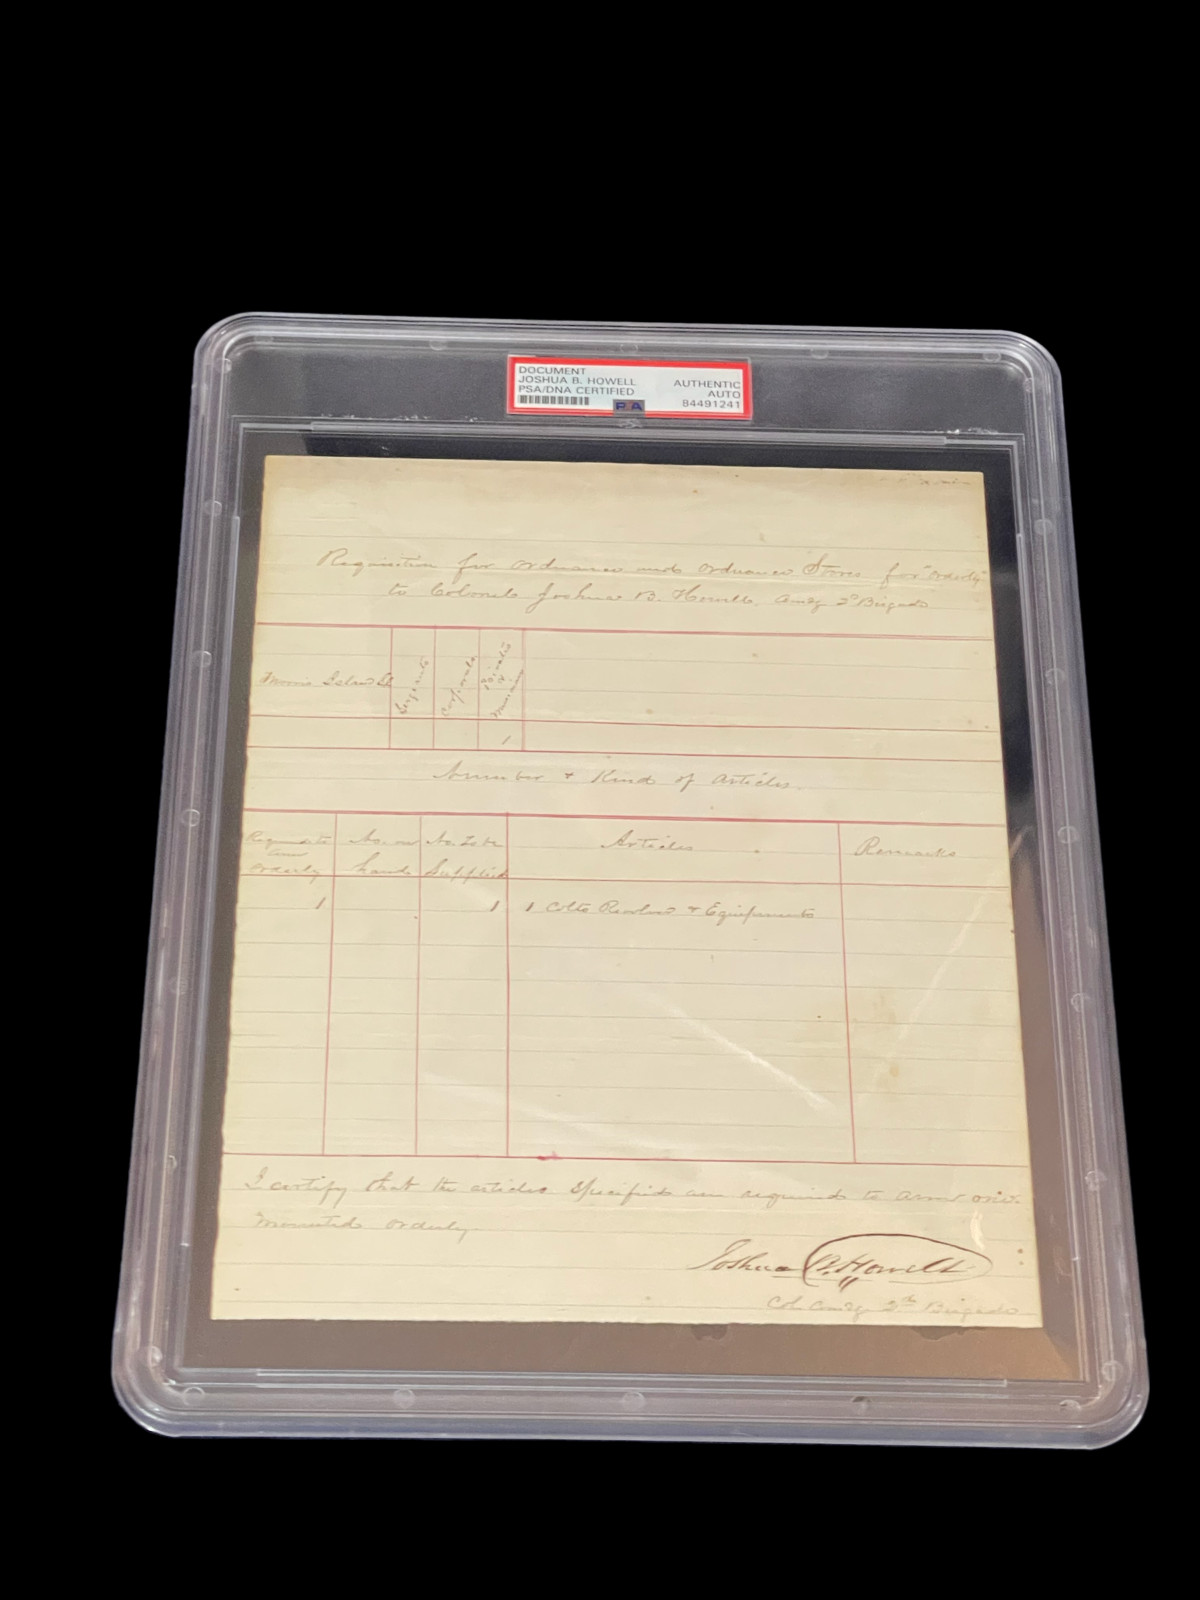 DOCUMENT
JOSHUA B. HOWELL
PSA/DNA CERTIFIED
AUTHENTIC
AUTO
84491241
PSA
Requisition for Ordnance and Ordnance Stores for "Orderly"
to Colonel Joshua B. Howell, Comdg 2d Brigade
Morris Island
Sergeants
Corporals
Privates & Musicians
1
Number & Kind of Articles.
Requisite to arm Orderly
No. on hand
No. to be Supplied
Articles
Remarks
1
1
1 Colts Revolver & Equipments
I certify that the articles specified are required to arm one
mounted orderly.
Joshua B. Howell
Col. Comdg 2d Brigade